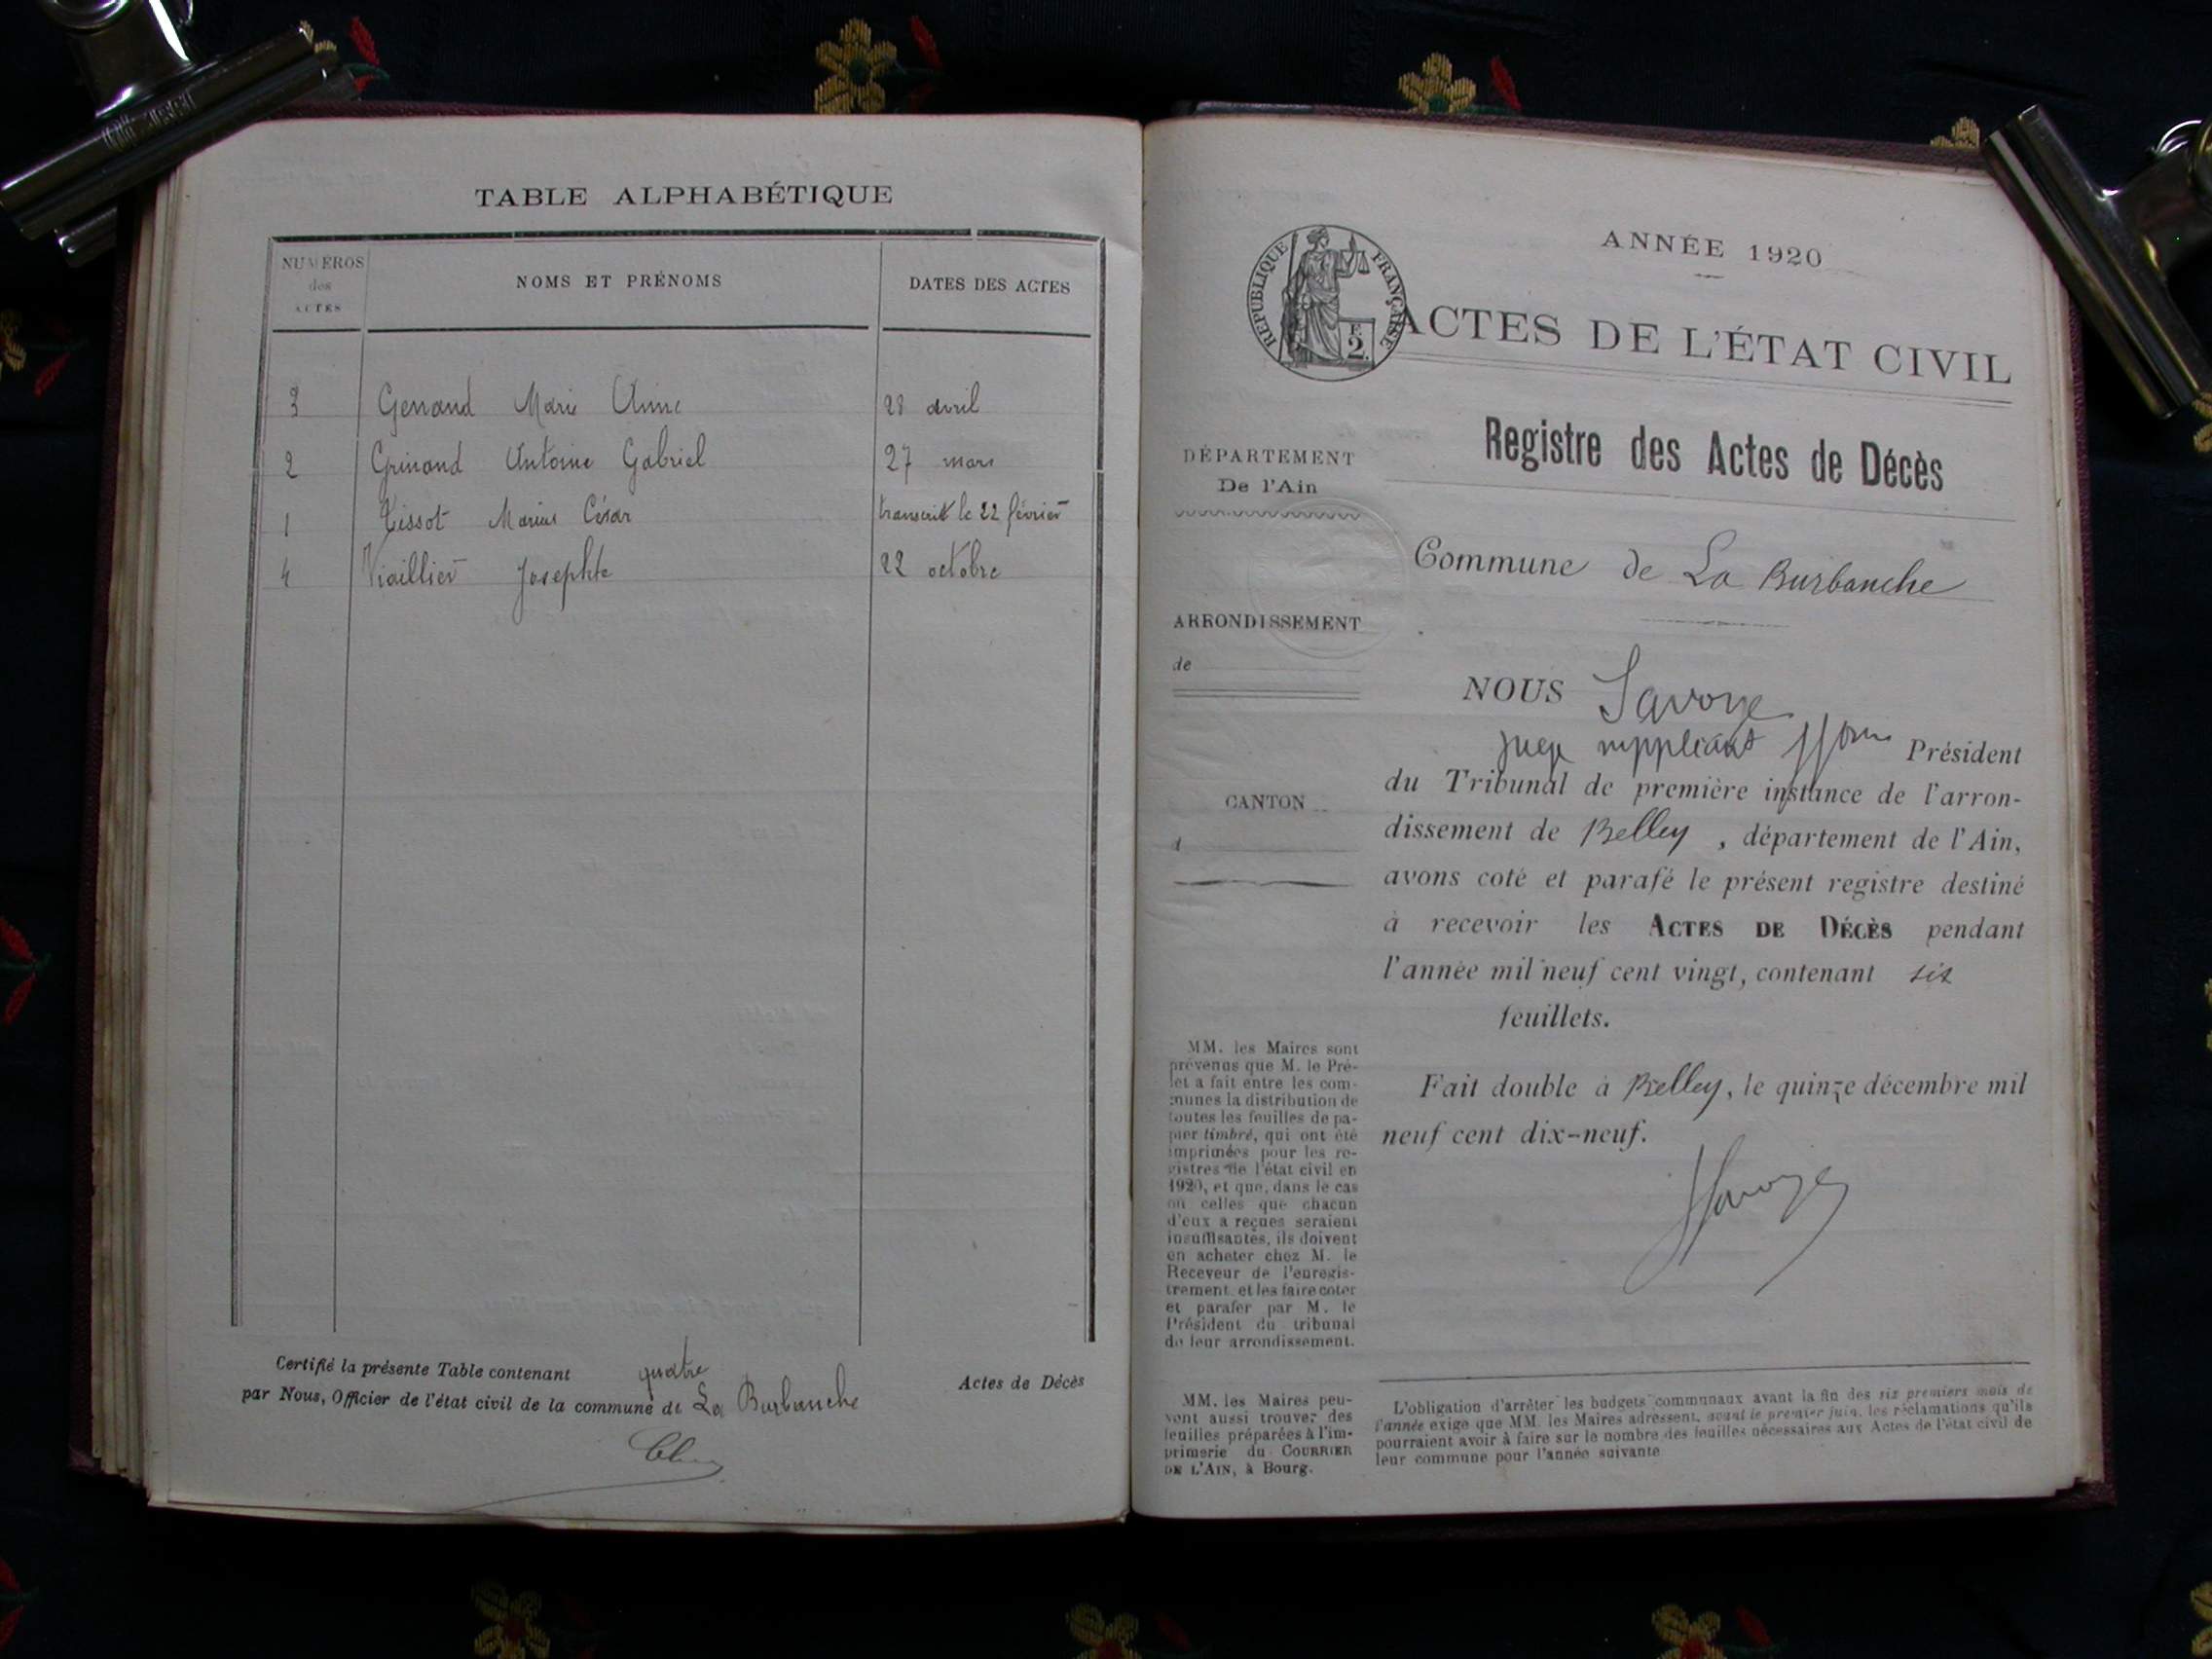 TABLE ALPHABÉTIQUE
NUMÉROS
des
ACTES
NOMS ET PRÉNOMS
DATES DES ACTES
3 Genand Marie Anne 28 avril
2 Grinand Antoine Gabriel 27 mars
1 Tissot Marius César transcrit le 22 février
4 Viaillier Josephte 22 octobre
Certifié la présente Table contenant quatre Actes de Décès
par Nous, Officier de l'état civil de la commune de La Burbanche
RÉPUBLIQUE FRANÇAISE
F.
2.
ANNÉE 1920
ACTES DE L'ÉTAT CIVIL
Registre des Actes de Décès
DÉPARTEMENT
De l'Ain
Commune de La Burbanche
ARRONDISSEMENT
de
CANTON
d
NOUS Savoye
juge suppléant Président
du Tribunal de première instance de l'arron-
dissement de Belley, département de l'Ain,
avons coté et parafé le présent registre destiné
à recevoir les ACTES DE DÉCÈS pendant
l'année mil neuf cent vingt, contenant six
feuillets.
Fait double à Belley, le quinze décembre mil
neuf cent dix-neuf.
Savoye
MM. les Maires sont
prévenus que M. le Pré-
fet a fait entre les com-
munes la distribution de
toutes les feuilles de pa-
pier timbré, qui ont été
imprimées pour les re-
gistres de l'état civil en
1920, et que, dans le cas
où celles que chacun
d'eux a reçues seraient
insuffisantes, ils doivent
en acheter chez M. le
Receveur de l'enregis-
trement et les faire coter
et parafer par M. le
Président du tribunal
de leur arrondissement.
MM. les Maires peu-
vent aussi trouver des
feuilles préparées à l'im-
primerie du COURRIER
DE L'AIN, à Bourg.
L'obligation d'arrêter les budgets communaux avant la fin des six premiers mois de
l'année exige que MM. les Maires adressent, avant le premier juin, les réclamations qu'ils
pourraient avoir à faire sur le nombre des feuilles nécessaires aux Actes de l'état civil de
leur commune pour l'année suivante